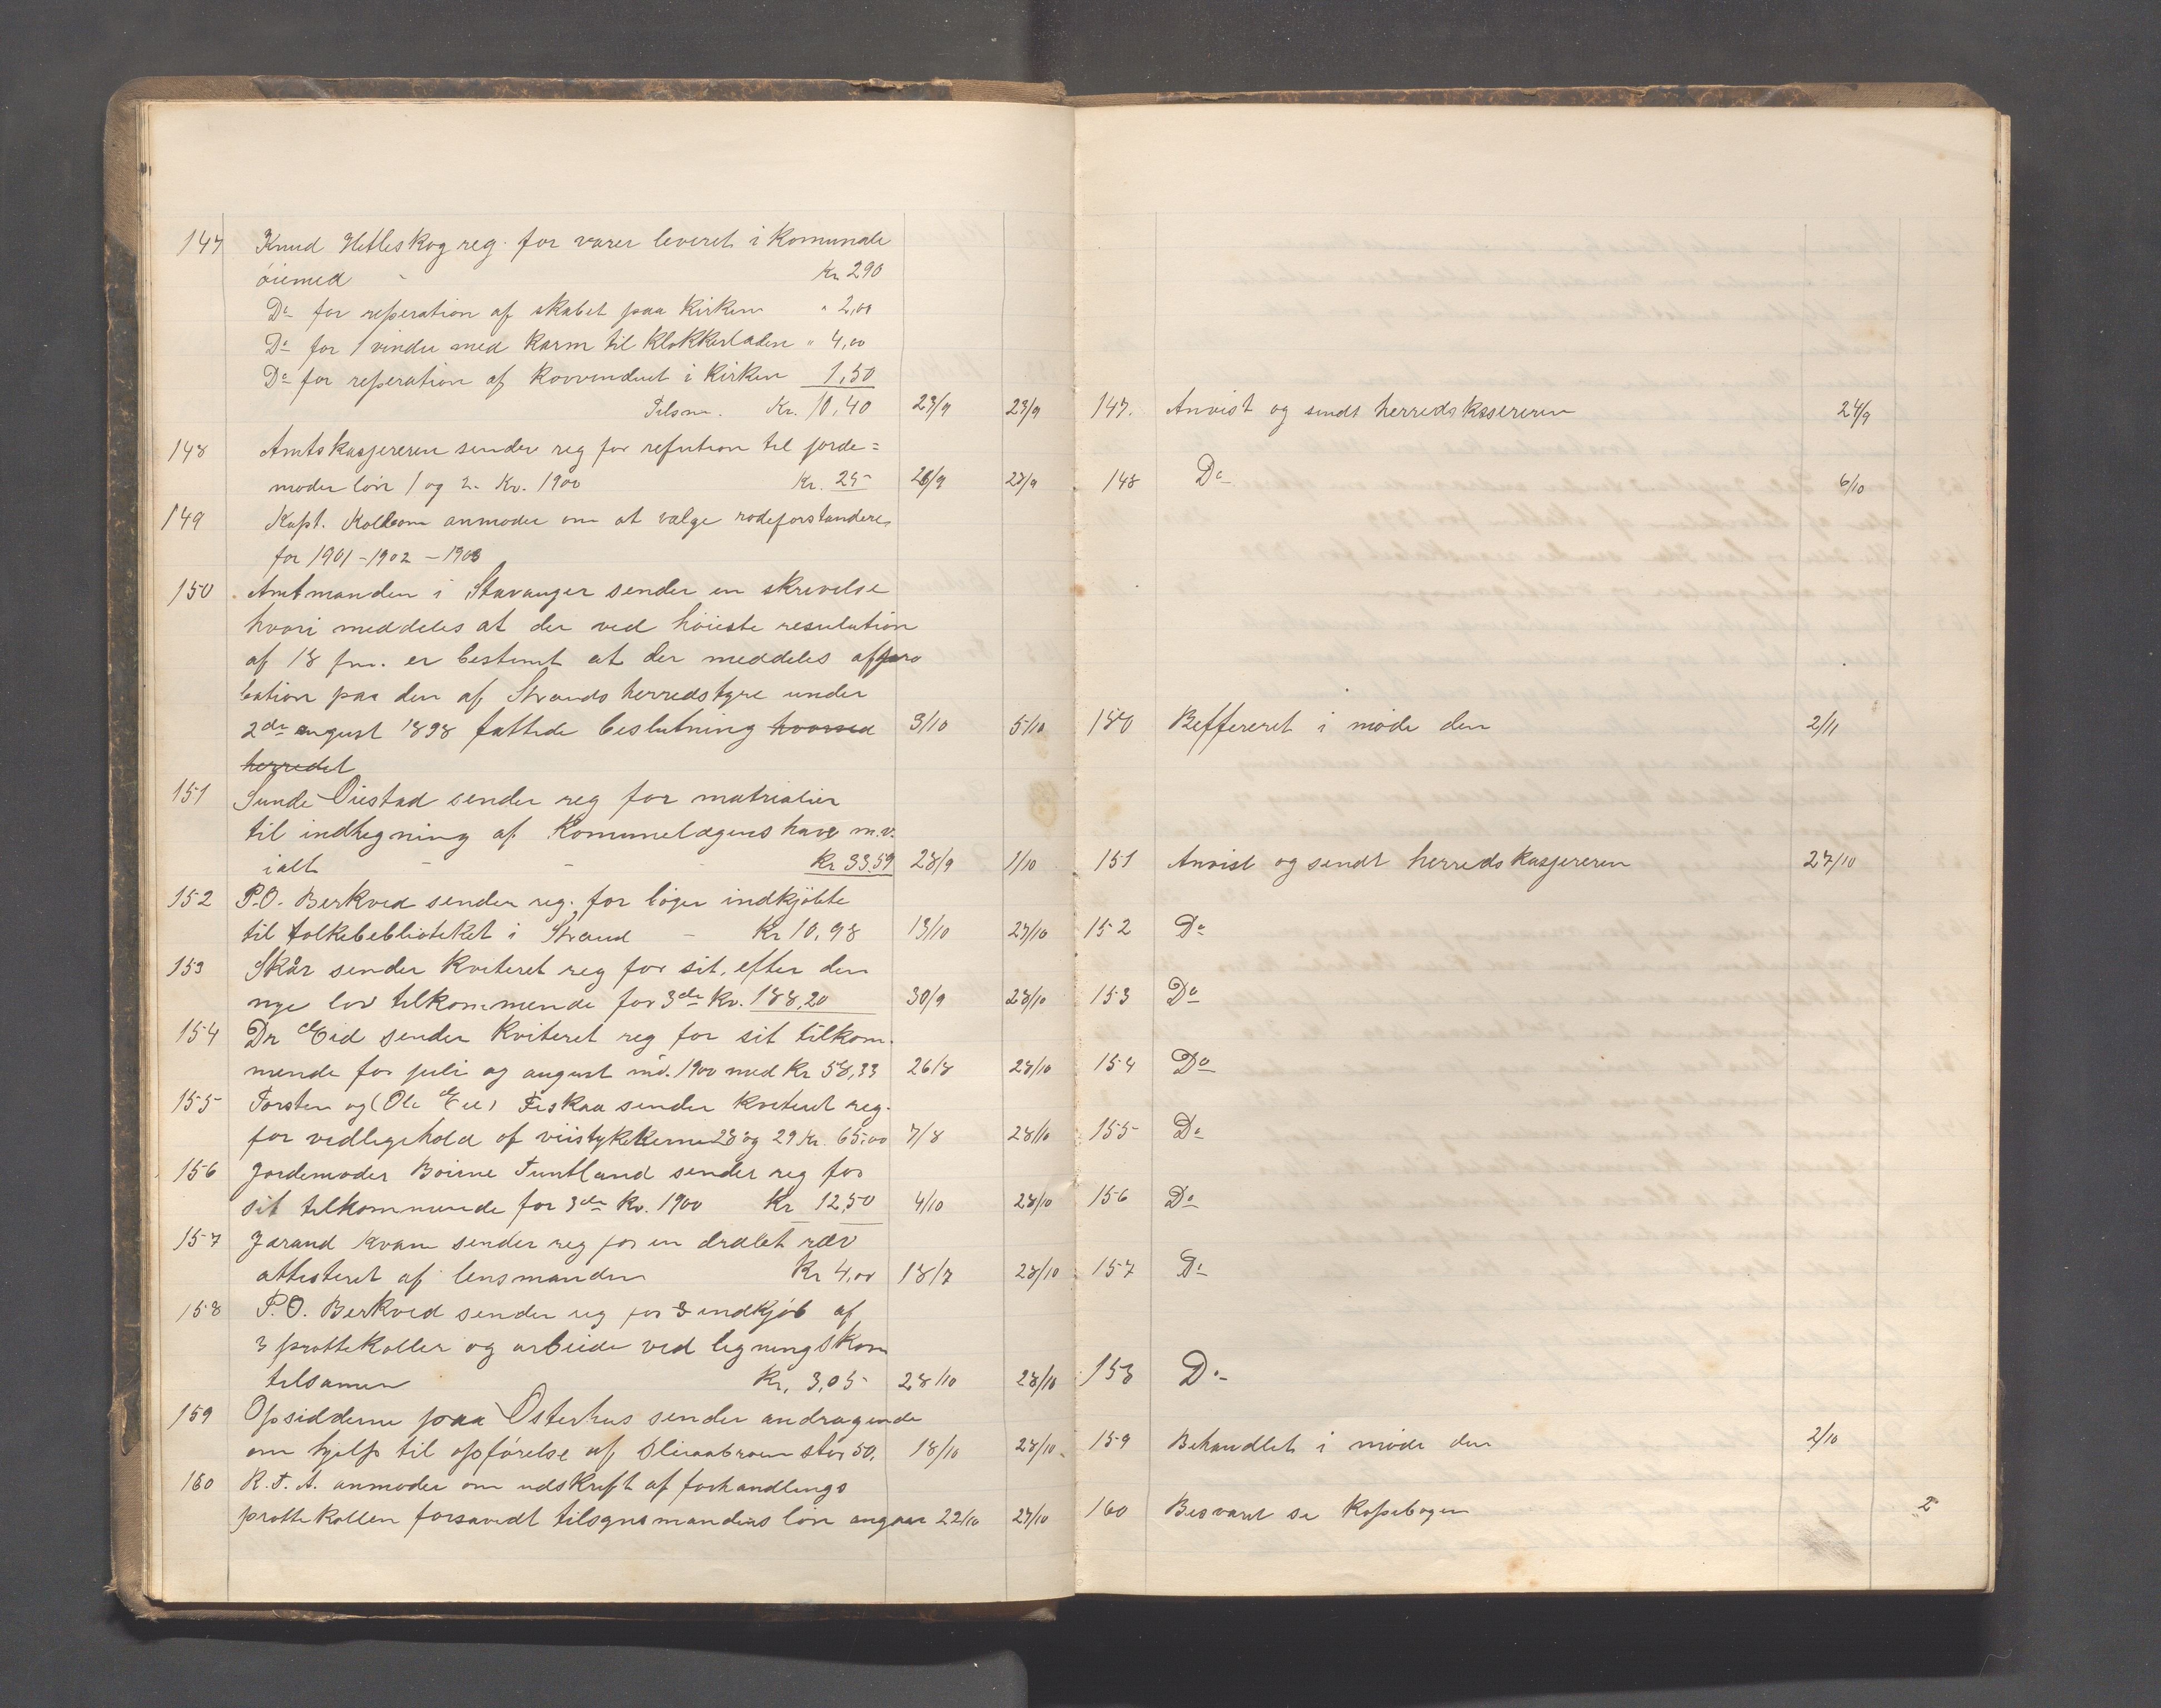 147 Knud Hetleskog reg. for varer leveret i Komunale
öiemed - Kr 290
Do for reperation af skabet paa Kirken " 2,00
Do for 1 vindu med Karm til Klokkerladen " 4,00
Do for reperation af Korvinduet i Kirken 1,50
Tilsm. Kr. 10,40 23/9 23/9
148 Amtskasjereren sender reg for refution til jorde=
moder lön 1 og 2. Kv. 1900 Kr. 25- 26/9 27/9
149 Kapt. anmoder om at valge rodeforstandere
for 1901-1902-1903
150 Amtmanden i Stavanger sender en skrivelse
hvori meddeles at der ved höieste resulution
af 18 er bestemt at der meddeles appro
bation paa den af Strands herredstyre under
2de august 1898 fattede beslutning hvorved 3/10 5/10
herredet
151 Sunde Öiestad sender reg for matrialier
til indhegning af Komunelægens have m.v.
ialt - - - Kr 33.59 28/9 1/10
152 P.O. Berkved sender reg. for böger indkjöbte
til folkebeblioteket i Strand - Kr 10,98 13/10 27/10
153 Skår sender kviteret reg for sit, efter den
nye lov tilkommende for 3de Kv. 188,20 30/9 28/10
154 Dr Eid sender kviteret reg for sit tilkom-
mende for juli og august md. 1900 med Kr 58,33 26/8 28/10
155 Torsten og (Ole Eie) Fiskaa sender kviteret reg.
for vedligehold af veistykkerne 28 og 29 Kr. 65,00 7/8 28/10
156 Jordemoder Boirne Tuntland sender reg for
sit tilkommende for 3de Kv. 1900 Kr 12,50 4/10 28/10
157 Jarand Kvam sender reg for en dræbt ræv
attesteret af lensmanden Kr 4,00 18/7 28/10
158 P.O. Berkved sender reg for 3 indkjöb af
3 prottekoller og arbeide ved ligningskom
tilsamen Kr. 3,05 28/10 28/10
159 Opsidderne paa Österhus sender andragende
om hjelp til opförelse af stor 50. 18/10 28/10
160 R.T.A. anmoder om udskrift af forhandlings
prottekollen forsavidt tilsynsmandens lön angaar 22/10 27/10
147. Anvist og sendt herredskassereren 24/9
148 Do 6/10
150 Reffereret i möde den 2/11
151 Anvist og sendt herredskasjereren 27/10
152 Do
153 Do
154 Do
155 Do
156 Do
157 Do
158 Do
159 Behandlet i möde den 2/10
160 Besvaret se Kopibogen 2